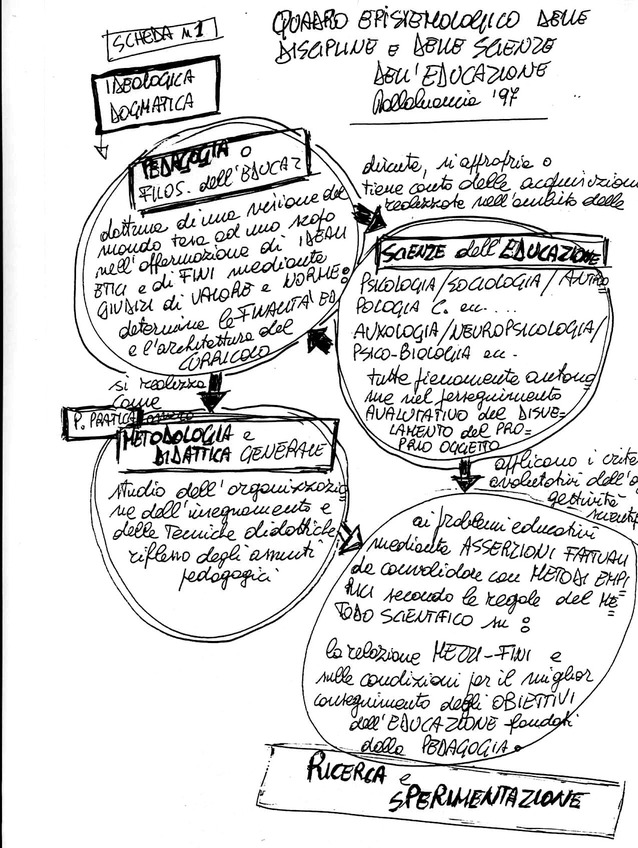 SCHEDA N.1
QUADRO EPISTEMOLOGICO DELLE
DISCIPLINE e DELLE SCIENZE
DELL'EDUCAZIONE
'97
IDEOLOGICA
DOGMATICA
PEDAGOGIA o
FILOS. dell'EDUCAZ
dottrina di una visione del
mondo tesa ad uno scopo
nell'affermazione di IDEALI
ETICI e di FINI mediante
GIUDIZI di VALORE e NORME:
determina le FINALITA' ED
e l'architettura del
CURRICOLO
discute, si appropria o
tiene conto delle acquisizioni
realizzate nell'ambito delle
SCIENZE dell'EDUCAZIONE
PSICOLOGIA/SOCIOLOGIA/ANTRO
POLOGIA C. ecc....
AUXOLOGIA/NEUROPSICOLOGIA/
PSICO-BIOLOGIA ecc.
tutte pienamente autono
me nel perseguimento
AVALUTATIVO del DISVE-
LAMENTO del PRO-
PRIO OGGETTO
si realizza
come
P. PRATICA
METODOLOGIA e
DIDATTICA GENERALE
studio dell'organizzazio
ne dell'insegnamento e
delle Tecniche didattiche
riflesso degli assunti
pedagogici
applicano i crite
avalutativi dell'o
gettività
scientif
ai problemi educativi
mediante ASSERZIONI FATTUALI
da convalidare con METODI EMPI
RICI secondo le regole del ME
TODO SCIENTIFICO su:
la relazione MEZZI-FINI e
sulle condizioni per il miglior
conseguimento degli OBIETTIVI
dell'EDUCAZIONE fondati
dalla PEDAGOGIA.
RICERCA e
SPERIMENTAZIONE